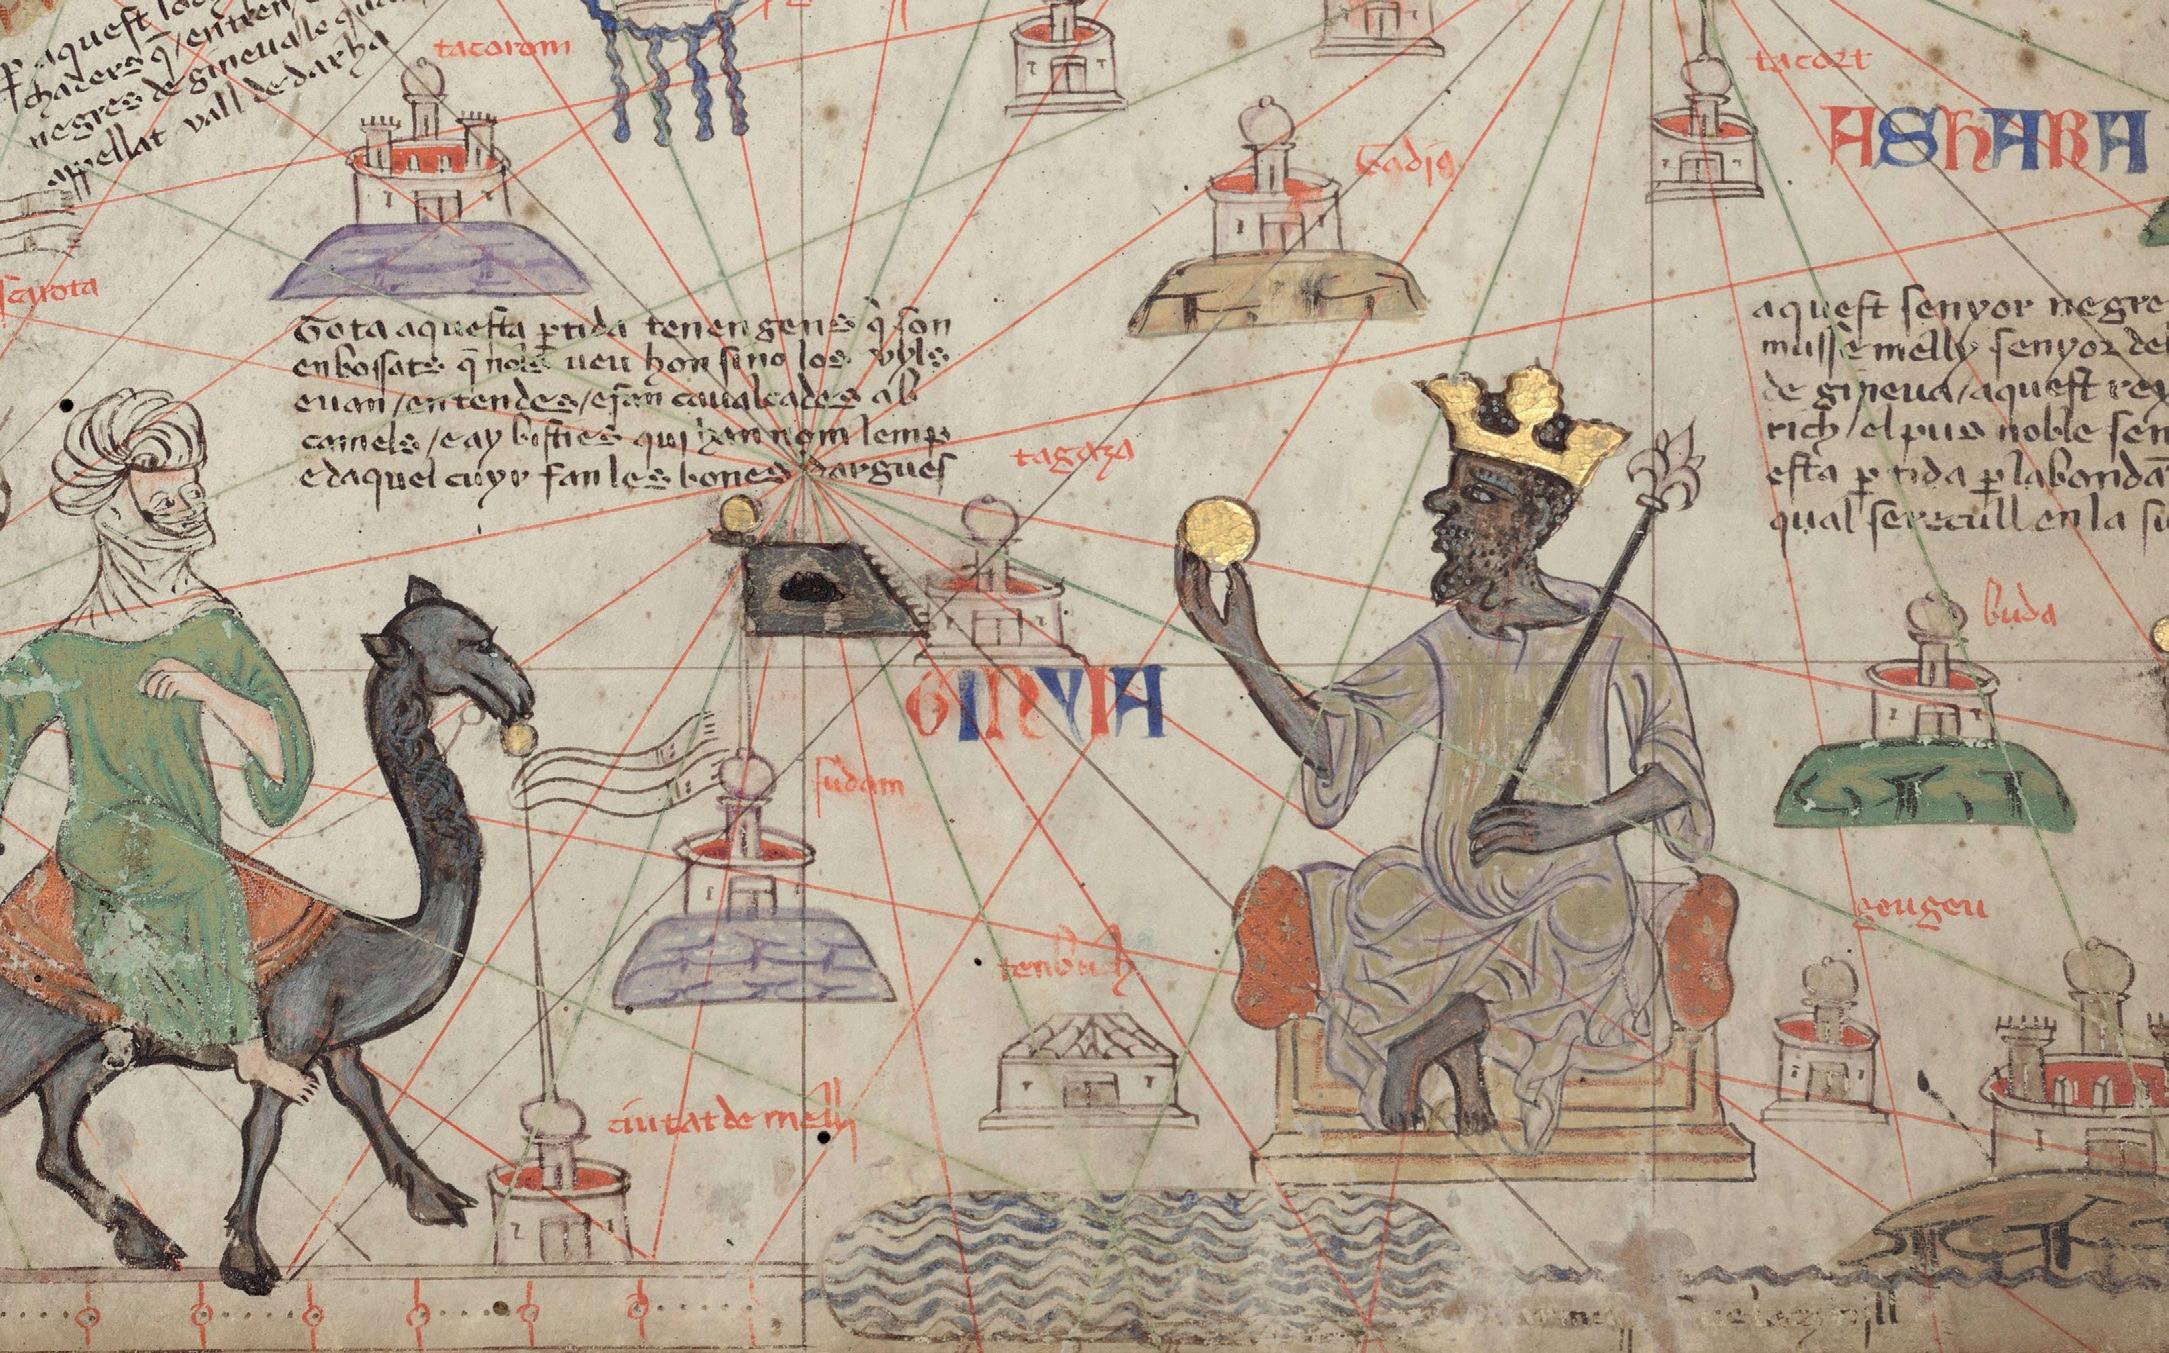 p aquest loch
negres de gineua le qual
apellat vall de darha
tacorom
tacort
ASHARA
Tota aquesta ptida tenen gens q son
enbossats q nols veu hom sino los uyls
e van en tendes e fan caualcades ab
camels e ay bisties qui han nom lemp
e daquel cuyr fan les bones dargues
aquest senyor negre
musse melly senyor de
de gineua aquest rey
rich el pus noble sen
esta ptida p labonda
qual se recull en la su
tagaza
buda
GINYIA
sudam
geugeu
tenbuch
ciutat de melly